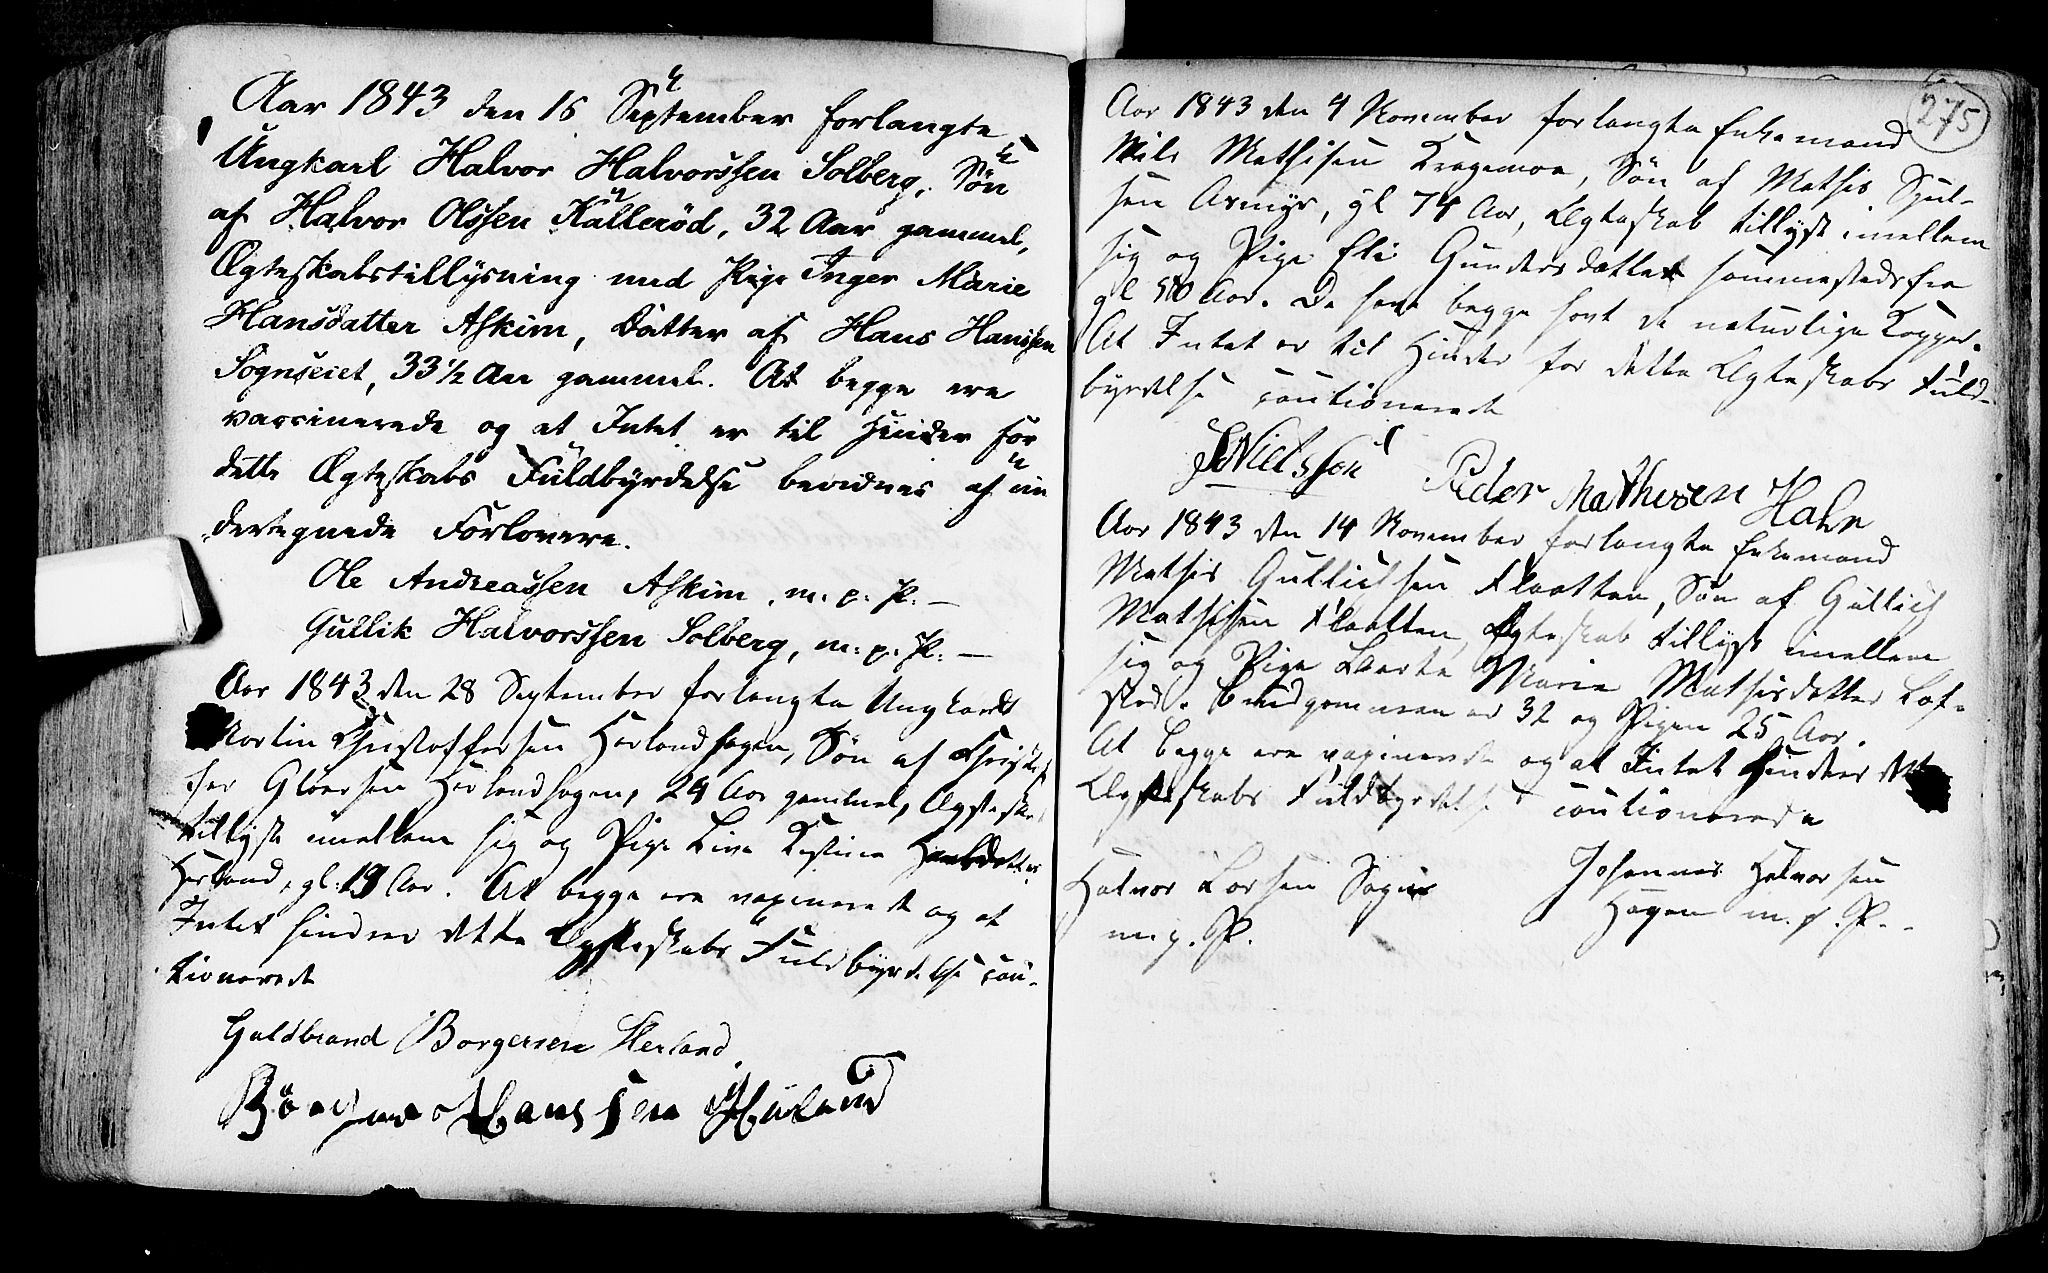 Aar 1843 den 16 September forlangte
Ungkarl Halvor Halvorssen Solberg, Søn
af Halvor Olssen Kallerød, 32 Aar gammel,
Ægteskabstillysning med Pige Inger Marie
Hansdatter Askim, Datter af Hans Hanssen
Sognseiet, 33½ Aar gammel. At begge ere
vaccinerede og at Intet er til Hinder for
dette Ægteskabs Fuldbyrdelse bevidnes af un
dertegnede Forlovere.
Ole Andreassen Askim, m. p. P. —
Gullik Halvorssen Solberg, m. p. P. —
Aar 1843 den 28 September forlangte Ungkarl
Martin Christoffersen Herlandhagen, Søn af Christof
fer Gloersen Herlandhagen, 24 Aar gammel, Ægteska
tillyst imellem sig og Pige Live Kistine
Herland, gl. 19 Aar. At begge ere vaxineret og at
Intet hindrer dette Ægteskabs Fuldbyrdelse cau-
tioneret
Guldbrand Borgersen Herland.
Børger Hanssen Herland
275
Aar 1843 den 4 November forlangte Enkemand
Nils Mathisen Kragemoe, Søn af Mathis
sen Aamyr, gl 74 Aar, Ægteskab tillyst imellem
sig og Pige Eli Gundersdatter sammestedsfra
gl 50 Aar. De have begge havt de naturlige Kopper.
At Intet er til Hinder for dette Ægteskabs Fuld-
byrdelse cautionerede
Nielssen Peder Mathesen Hahn
Aar 1843 den 14 November forlangte Enkemand
Mathis Gullichsen Flaatten, Søn af Gullich
Mathisen Flaatten, Ægteskab tillyst imellem
sig og Pige Marie Mathisdatter Lof-
sted. Brudgommen er 32 og Pigen 25 Aar.
At begge ere vaxinerede og at Intet hindrer dette
Ægteskabs Fuldbyrdelse cautionerede
Halvor Larsen Johannes Halvorsen
m. p. P. Hagen m. p. P.